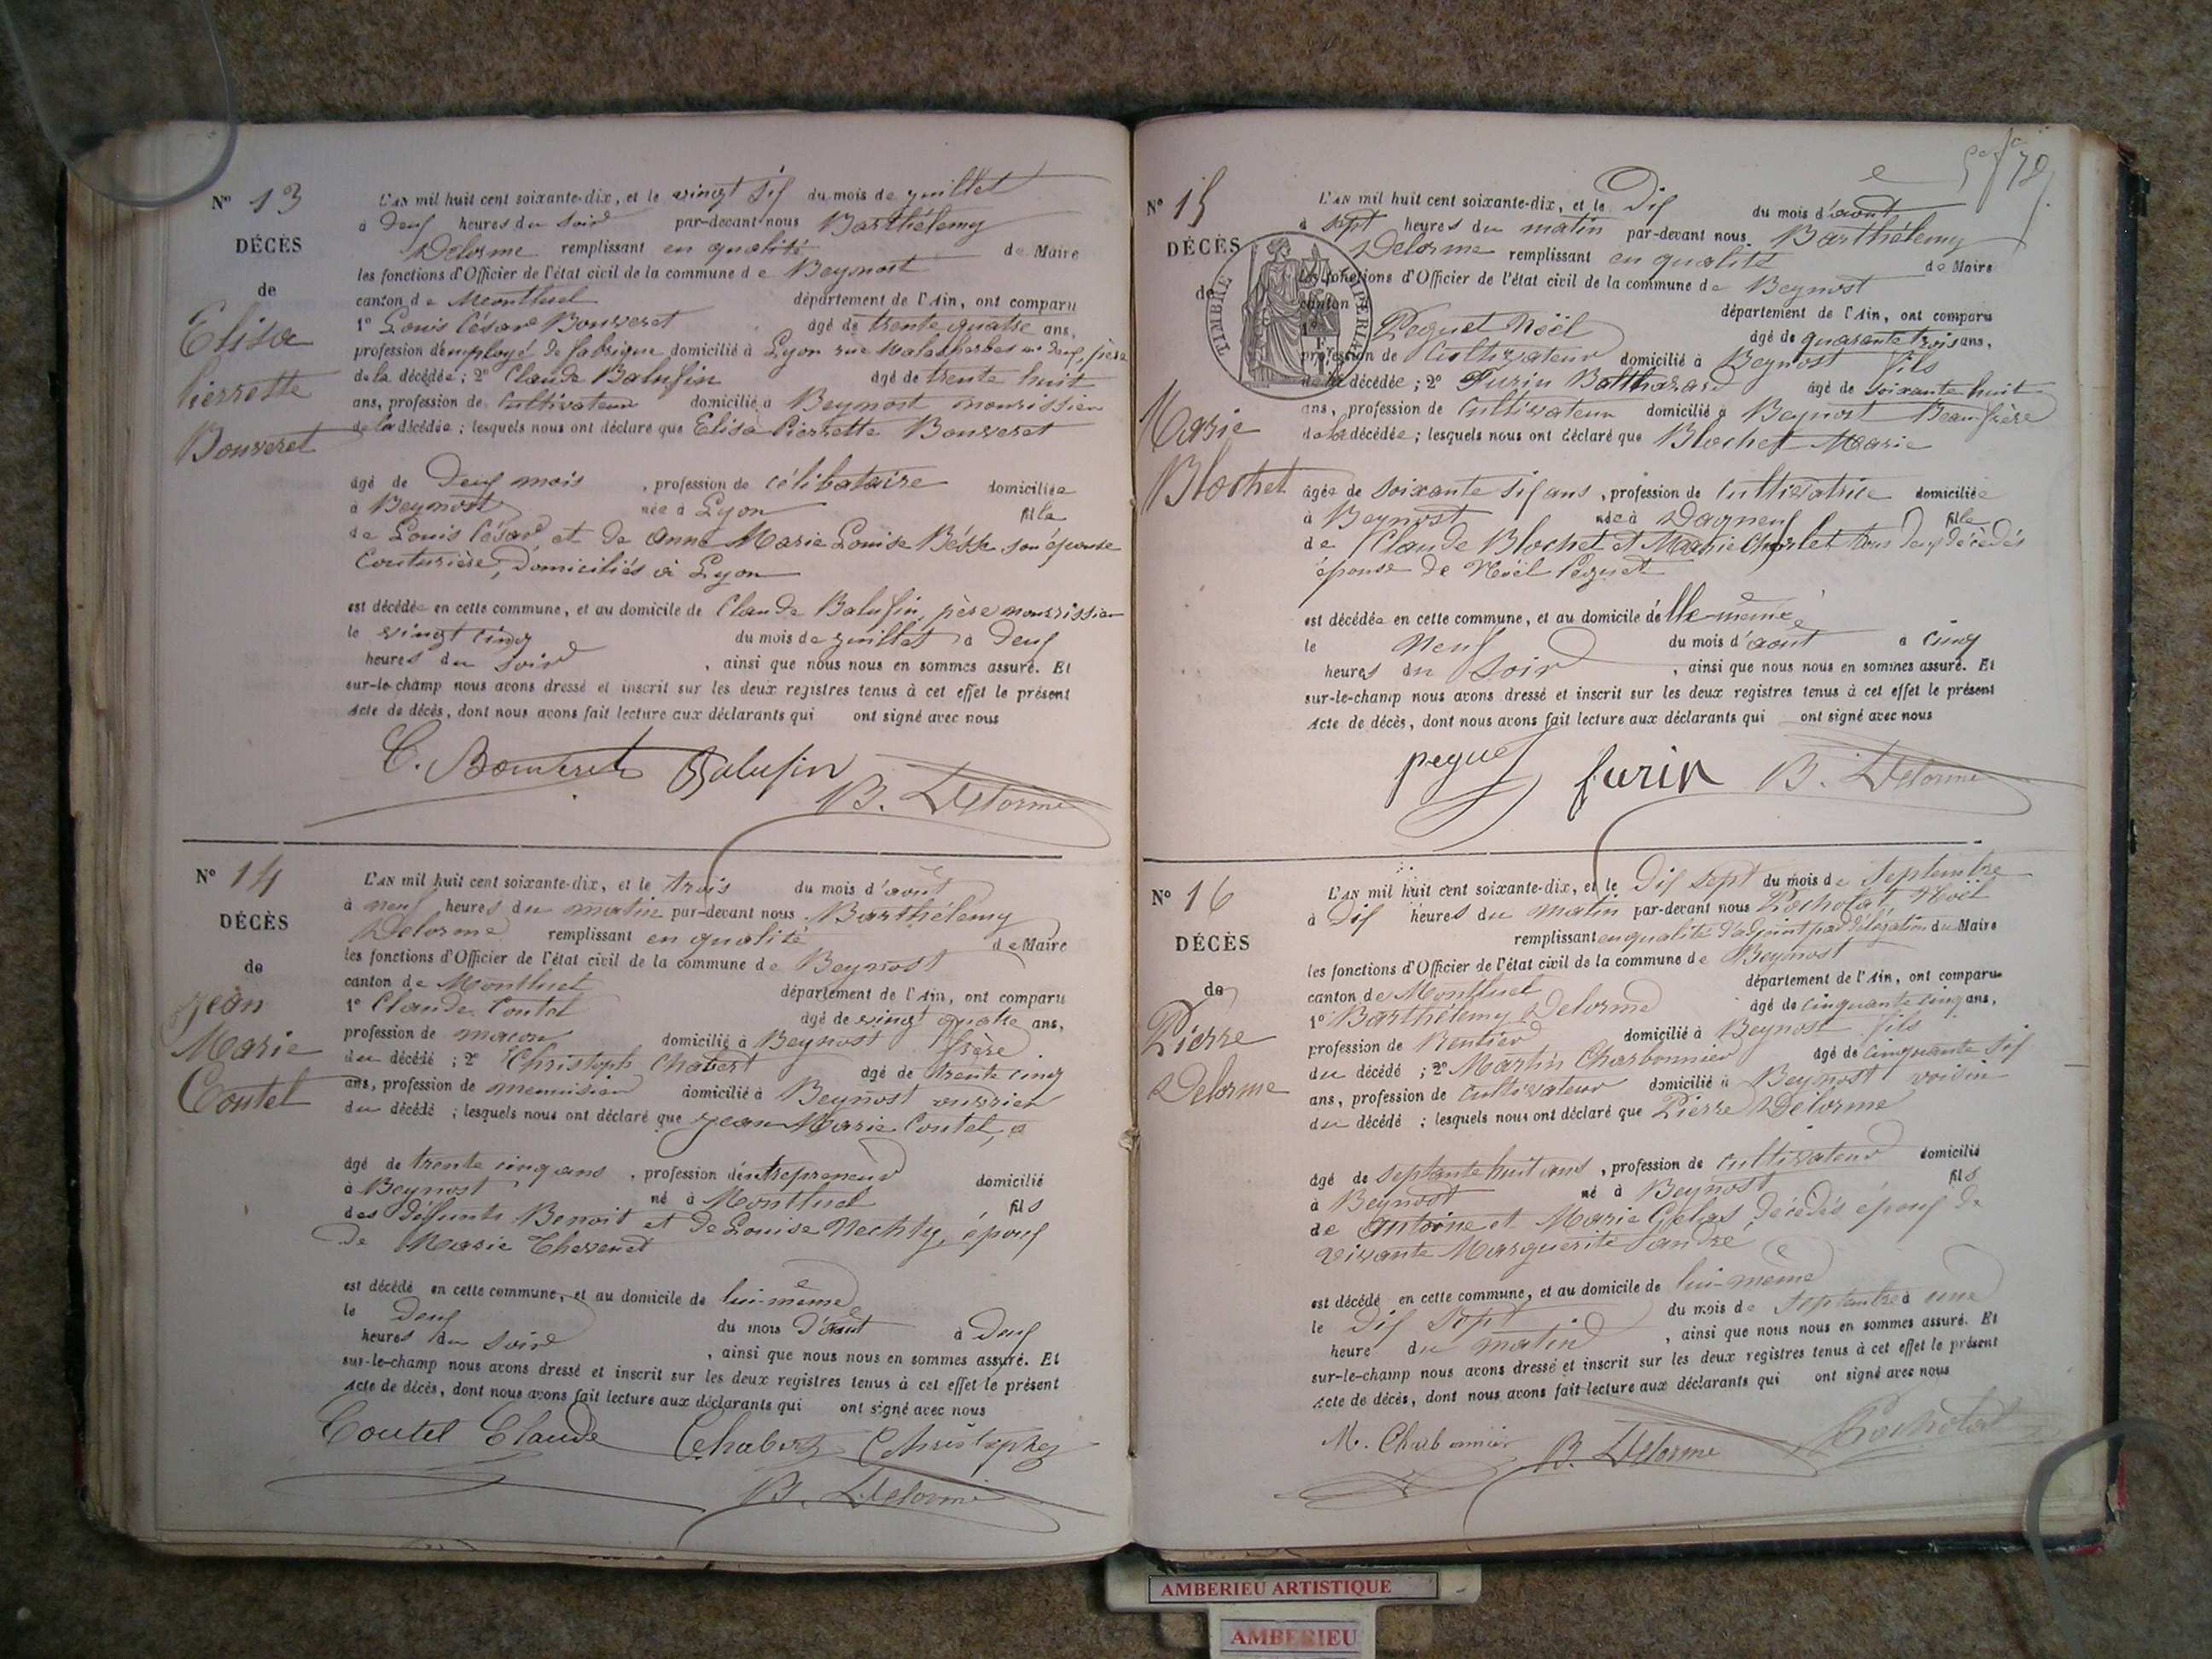 Nº 13
DÉCÈS
de
Elisa
Pierrette
Bouveret
L'AN mil huit cent soixante-dix, et le vingt six du mois de juillet
à deux heures du soir par-devant nous Barthélemy
Delorme remplissant en qualité de Maire
les fonctions d'Officier de l'état civil de la commune de Beynost
canton de Montluel département de l'Ain, ont comparu
1º Louis César Bouveret âgé de trente quatre ans,
profession d'employé de fabrique domicilié à Lyon rue Malesherbes deux, père
de la décédée; 2º Claude Balufin âgé de trente huit
ans, profession de cultivateur domicilié à Beynost nourissier
de la décédée; lesquels nous ont déclaré que Elisa Pierrette Bouveret
âgé de deux mois, profession de célibataire domiciliée
à Beynost née à Lyon fille
de Louis César et de Anne Marie Louise son épouse
Couturière, domiciliés à Lyon
est décédée en cette commune, et au domicile de Claude Balufin, père nourrissier
le vingt cinq du mois de juillet à deux
heures du soir, ainsi que nous nous en sommes assuré. Et
sur-le-champ nous avons dressé et inscrit sur les deux registres tenus à cet effet le présent
Acte de décès, dont nous avons fait lecture aux déclarants qui ont signé avec nous
C. Bouveret Balufin
B. Delorme
Nº 14
DÉCÈS
de
Jean
Marie
Coutel
L'AN mil huit cent soixante-dix, et le trois du mois d'août
à neuf heures du matin par-devant nous Barthélemy
Delorme remplissant en qualité de Maire
les fonctions d'Officier de l'état civil de la commune de Beynost
canton de Montluel département de l'Ain, ont comparu
1º Claude Coutel âgé de vingt quatre ans,
profession de maçon domicilié à Beynost frère
du décédé; 2º Christoph Chabert âgé de trente cinq
ans, profession de menuisier domicilié à Beynost ouvrier
du décédé; lesquels nous ont déclaré que Jean Marie Coutel,
âgé de trente cinq ans, profession d'entrepreneur domicilié
à Beynost né à Montluel fils
des défunts Benoit et de Louise Nechty, époux
de Marie Thevenet
est décédé en cette commune, et au domicile de lui-même
le deux du mois d'août à deux
heures du soir, ainsi que nous nous en sommes assuré. Et
sur-le-champ nous avons dressé et inscrit sur les deux registres tenus à cet effet le présent
Acte de décès, dont nous avons fait lecture aux déclarants qui ont signé avec nous
Coutel Claude Chabert Christophe
B. Delorme
78
Nº 15
DÉCÈS
de
TIMBRE IMPERIAL
Marie
Blochet
L'AN mil huit cent soixante-dix, et le dix du mois d'août
à sept heures du matin par-devant nous Barthélemy
Delorme remplissant en qualité de Maire
les fonctions d'Officier de l'état civil de la commune de Beynost
canton département de l'Ain, ont comparu
1º Peguet Noël âgé de quarante trois ans,
profession de cultivateur domicilié à Beynost fils
de la décédée; 2º Furin Balthazard âgé de soixante huit
ans, profession de cultivateur domicilié à Beynost Beau frère
de la décédée; lesquels nous ont déclaré que Blochet Marie
âgée de soixante six ans, profession de cultivatrice domiciliée
à Beynost née à Dagneux fille
de Claude Blochet et Marie Charlet tous deux décédés
épouse de Noël Peguet
est décédée en cette commune, et au domicile d'elle-même
le neuf du mois d'août à cinq
heures du soir, ainsi que nous nous en sommes assuré. Et
sur-le-champ nous avons dressé et inscrit sur les deux registres tenus à cet effet le présent
Acte de décès, dont nous avons fait lecture aux déclarants qui ont signé avec nous
peguet furin B. Delorme
Nº 16
DÉCÈS
de
Pierre
Delorme
L'AN mil huit cent soixante-dix, et le dix sept du mois de septembre
à dix heures du matin par-devant nous Rocholat, Noël
remplissant en qualité d'adjoint par délégation du Maire
les fonctions d'Officier de l'état civil de la commune de Beynost
canton de Montluel département de l'Ain, ont comparu
1º Barthélemy Delorme âgé de cinquante cinq ans,
profession de Rentier domicilié à Beynost fils
du décédé; 2º Martin Charbonnier âgé de cinquante six
ans, profession de cultivateur domicilié à Beynost voisin
du décédé; lesquels nous ont déclaré que Pierre Delorme
âgé de septante huit ans, profession de cultivateur domicilié
à Beynost né à Beynost fils
de Antoine et Marie décédés époux de
vivante Marguerite Landre
est décédé en cette commune, et au domicile de lui-même
le dix sept du mois de septembre à une
heure du matin, ainsi que nous nous en sommes assuré. Et
sur-le-champ nous avons dressé et inscrit sur les deux registres tenus à cet effet le présent
Acte de décès, dont nous avons fait lecture aux déclarants qui ont signé avec nous
M. Charbonnier B. Delorme Rocholat
AMBERIEU ARTISTIQUE
AMBERIEU